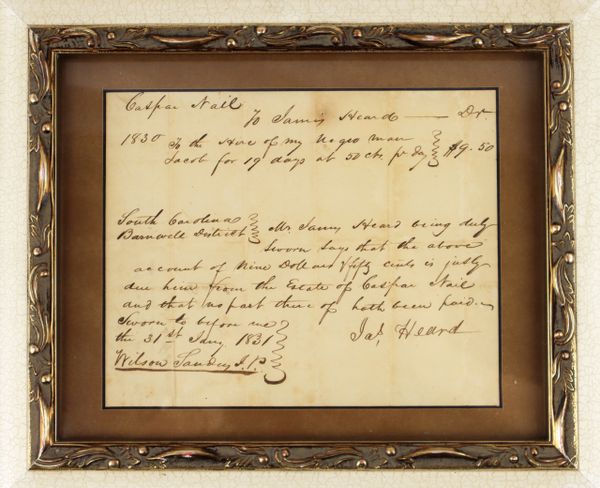 Caspar Nail
To James Heard — Dr
1830 To the Hire of my Negro man
Jacob for 19 days at 50 cts pr day $9.50
South Carolina
Barnwell District
Mr. James Heard being duly
Sworn says that the above
account of Nine Dollars & fifty cents is justly
due him from the Estate of Caspar Nail
and that no part thereof hath been paid
Sworn to before me
the 31st Jany 1831
Jas Heard
Wilson Sanders J.P.